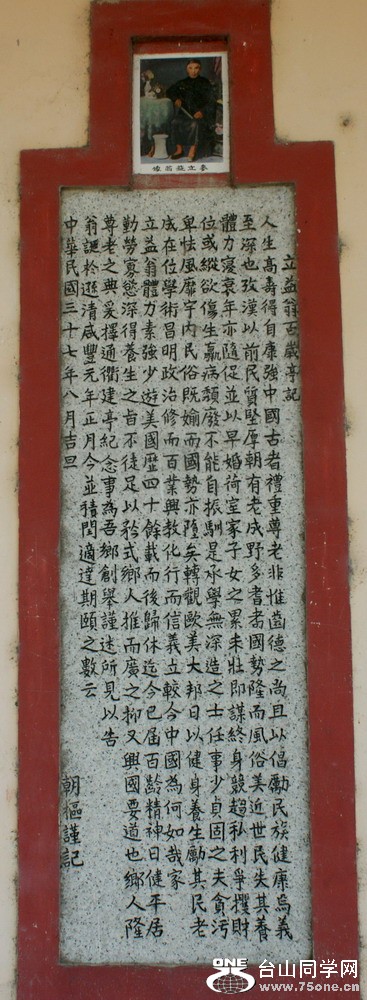 立益翁百歲亭記
人生高壽得自康強中國古者禮重尊老非惟齒德之尚且以倡勵民族健康為義
至深也攷漢以前民質堅厚朝有老成野多耆耈國勢隆而風俗美近世民失其養
體力寖衰年亦隨促並以早婚荷室家子女之累未壯即謀終身競趨私利爭攫財
位或縱欲傷生羸病頹廢不能自振馴足承學無深造之士任事少貞固之夫貪污
卑怯風靡宇內民俗既婾而國勢亦隆矣轉觀歐美大邦日以健身養生勵其民老
成在位學術昌明政治修而百業興教化行而信義立較今中國為何如哉家
立益翁體力素強少遊美國歷四十餘載而後歸休迄今已屆百齡精神日健平居
勤勞寡慾深得養生之旨不徒足以矜式鄉人推而廣之抑又興國要道也鄉人隆
尊老之典爰擇通衢建亭紀念事為吾鄉創舉謹述所見以告
翁誕於遜清咸豐元年正月今並積閏適達期頤之數云
中華民國三十七年八月吉旦
朝樞謹記
像翁益立
ONE
台山同学网
www.75one.cn